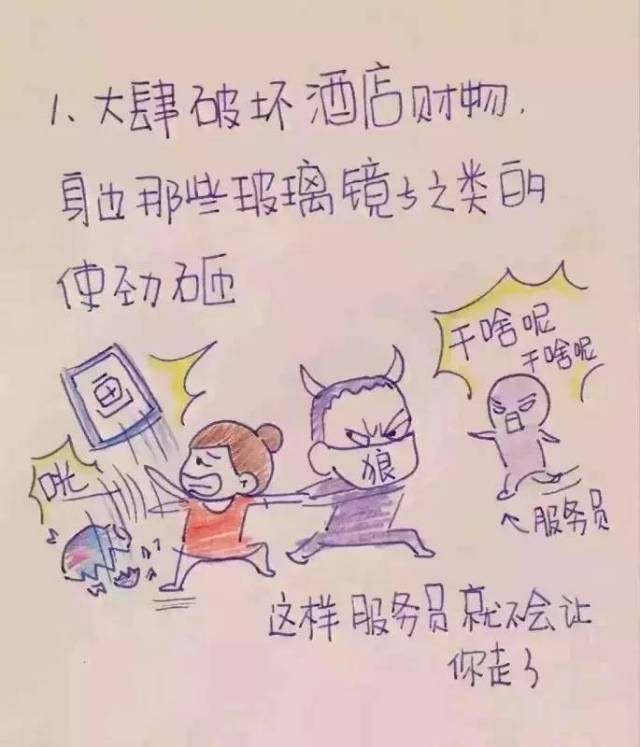 1、大肆破坏酒店财物.
身边那些玻璃镜子之类的
使劲砸
画
干啥呢
干啥呢
咣
狼
服务员
这样服务员就不会让
你走了